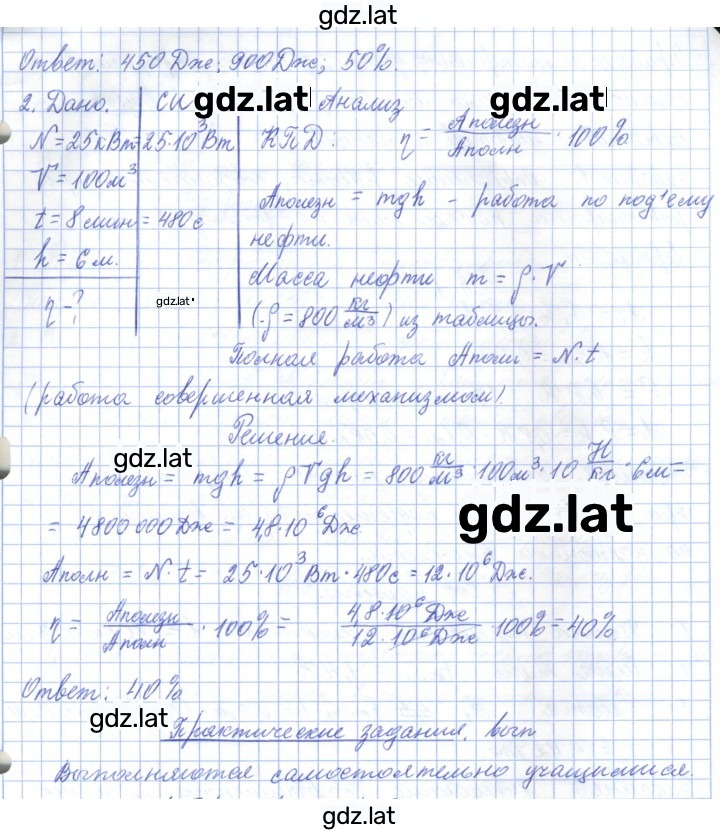 gdz.lat
Ответ: 450 Дж; 900 Дж; 50%.
2. Дано. СИ gdz.lat Анализ gdz.lat
N = 25 кВт = 25·10³ Вт КПД: η = Аполезн / Аполн · 100%
V = 100 м³
Аполезн = mgh - работа по под'ему
t = 8 мин = 480 с
нефти.
h = 6 м.
Масса нефти m = ρ·V
η - ? gdz.lat
(ρ = 800 кг/м³) из таблицы.
Полная работа Аполн = N·t
(работа совершенная механизмом).
Решение.
gdz.lat
Аполезн = mgh = ρVgh = 800 кг/м³ · 100 м³ · 10 Н/кг · 6 м =
= 4800 000 Дж = 4,8·10⁶ Дж.
gdz.lat
Аполн = N·t = 25·10³ Вт · 480 с = 12·10⁶ Дж.
η = Аполезн / Аполн · 100% = 4,8·10⁶ Дж / 12·10⁶ Дж · 100% = 40%
Ответ: 40%
gdz.lat
Практические задания. вып
Выполняются самостоятельно учащимися.
gdz.lat